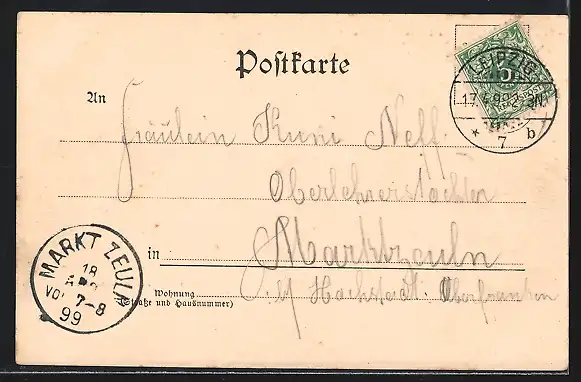 Postkarte
An
Fräulein Kuni Neff
Oberlehrerstochter
in Marktzeuln
Wohnung
(Straße und Hausnummer)
Hochstadt Oberfranken
LEIPZIG
17.4.99
* 7 b
MARKT ZEULN
18
APR
VOR 7-8
99